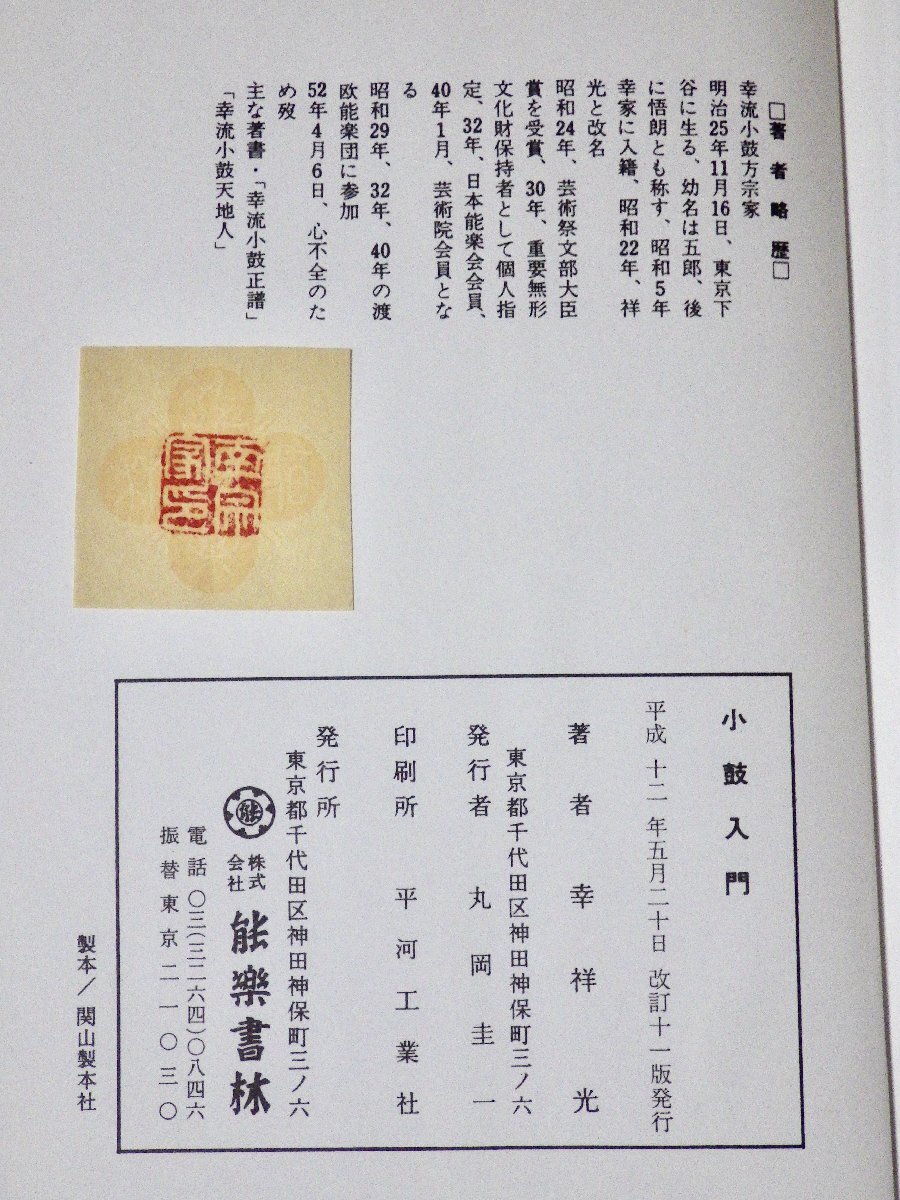 □著者略歴□
幸流小鼓方宗家
明治25年11月16日、東京下
谷に生る、幼名は五郎、後
に悟朗とも称す、昭和5年
幸家に入籍、昭和22年、祥
光と改名
昭和24年、芸術祭文部大臣
賞を受賞、30年、重要無形
文化財保持者として個人指
定、32年、日本能楽会会員、
40年1月、芸術院会員とな
る
昭和29年、32年、40年の渡
欧能楽団に参加
52年4月6日、心不全のた
め歿
主な著書・「幸流小鼓正譜」
「幸流小鼓天地人」
小鼓入門
平成十二年五月二十日 改訂十一版発行
著者 幸祥光
東京都千代田区神田神保町三ノ六
発行者 丸岡圭一
印刷所 平河工業社
発行所
東京都千代田区神田神保町三ノ六
能
株式会社 能樂書林
電話〇三(三二六四)〇八四六
振替東京二一〇三〇
製本/関山製本社